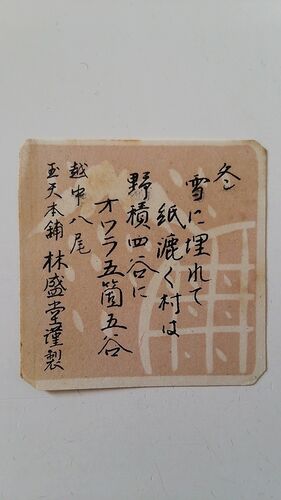 冬
雪に埋れて
紙漉く村は
野積四谷に
オワラ五箇五谷
越中八尾
玉天本舗 林盛堂謹製